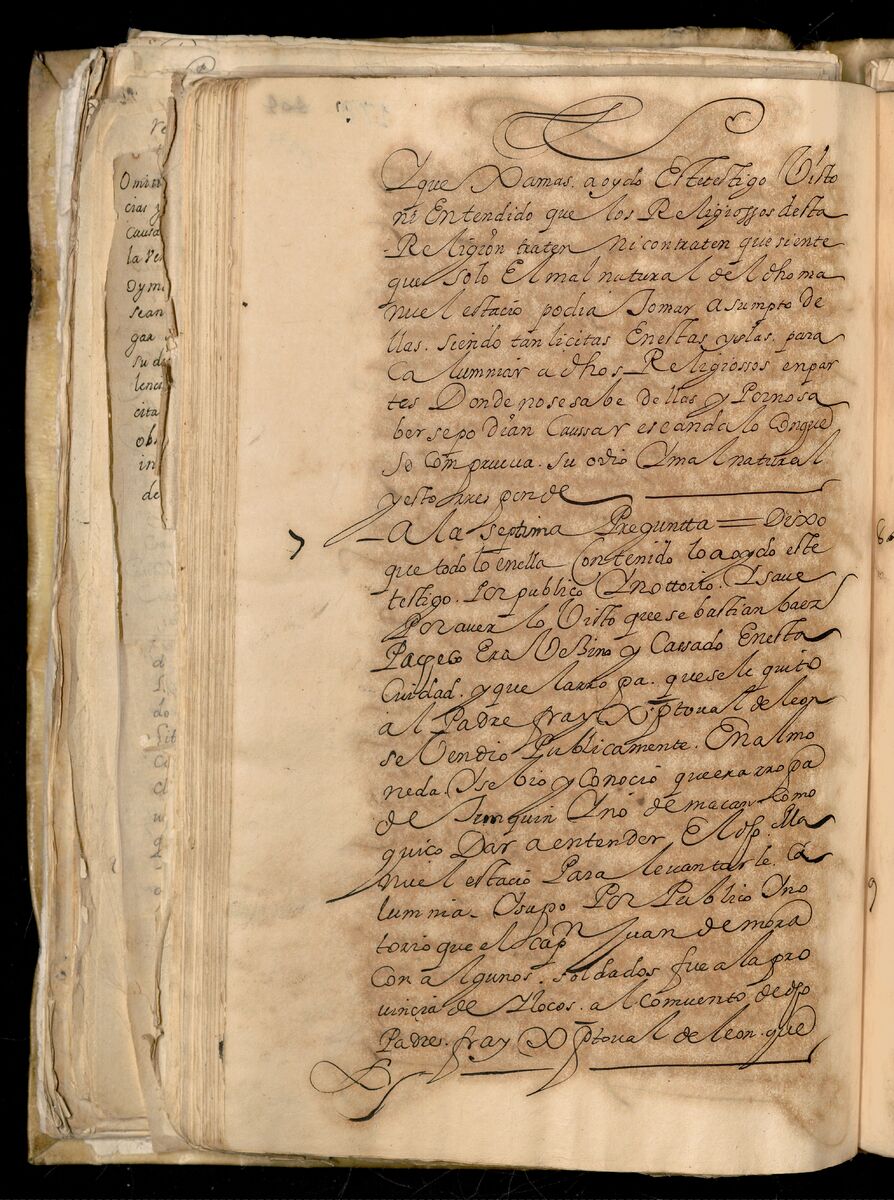 Omiti
cias y
Causa
la ve
Dymi
sean
gar
su di
lenci
cita
ob
in
de
Yque Xamas. a oydo Estetestigo Visto
ni Entendido que los Religiossos desta
Religion traten Ni contraten que siente
que solo El mal natural del dho ma
nuel estacio podia Tomar asumpto de
llas. siendo tan licitas Enestas yslas. para
Calumniar a dhos Religiossos enpar
tes Donde nosesabe dellas y Pornosa
bersepodian Caussar escandalo Conque
se Comprueva. su odio Ymal natural
yesto rresponde
7
A la septima Preguntta = Dixo
que todo lo enella Contenido lo a oydo este
testigo. Por publico Ynottorio. Ysave
Por averlo Visto que sebastian baez
Pacheco Era Vesino y Cassado Enesta
Ciudad. y que la rropa. quesele quito
al Padre fray Xptoual de leon
se Vendio Publicamente. En almo
neda. Yse bio y Conocio que era rropa
de Tunquin Yno de macan Como
quiço Dar a entender El dho. Ma
nuel estacio Para levantarle. Ca
lumnia. Ysupo Por Publico Yno
torio que el Cap.n Juan de mora
Con algunos. soldados fue a la pro
uinçia de Ylocos. al Comuento de dho
Padre. fray Xptoual de leon. que